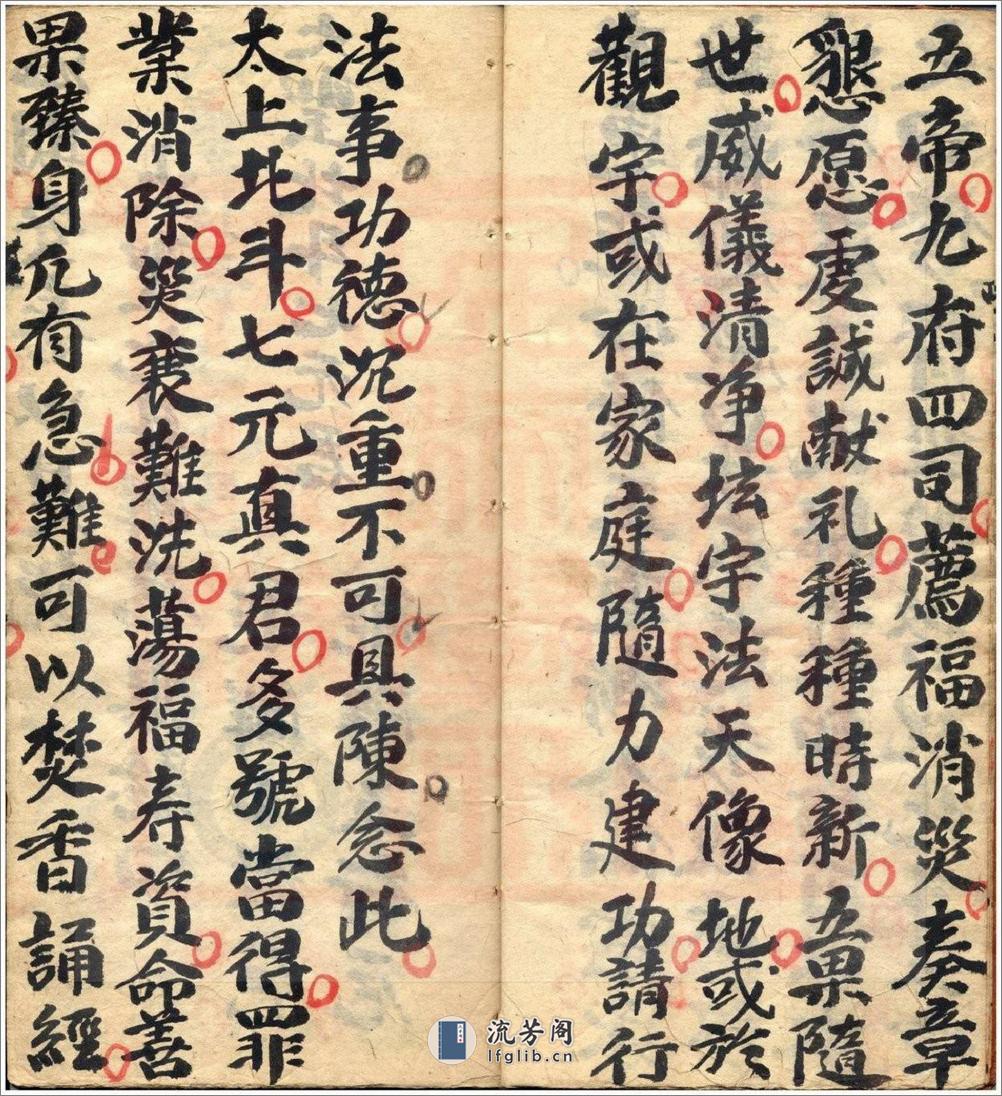 五帝九府四司薦福消災奏章
懇愿虔誠献礼種種時新五果隨
世威儀清净坛宇法天像地或於
觀宇或在家庭隨力建功請行
法事功德沉重不可具陳念此
太上北斗七元真君多號當得罪
業消除災衰難洗蕩福寿資命善
果臻身凢有急難可以焚香誦經
流芳阁
lfglib.cn